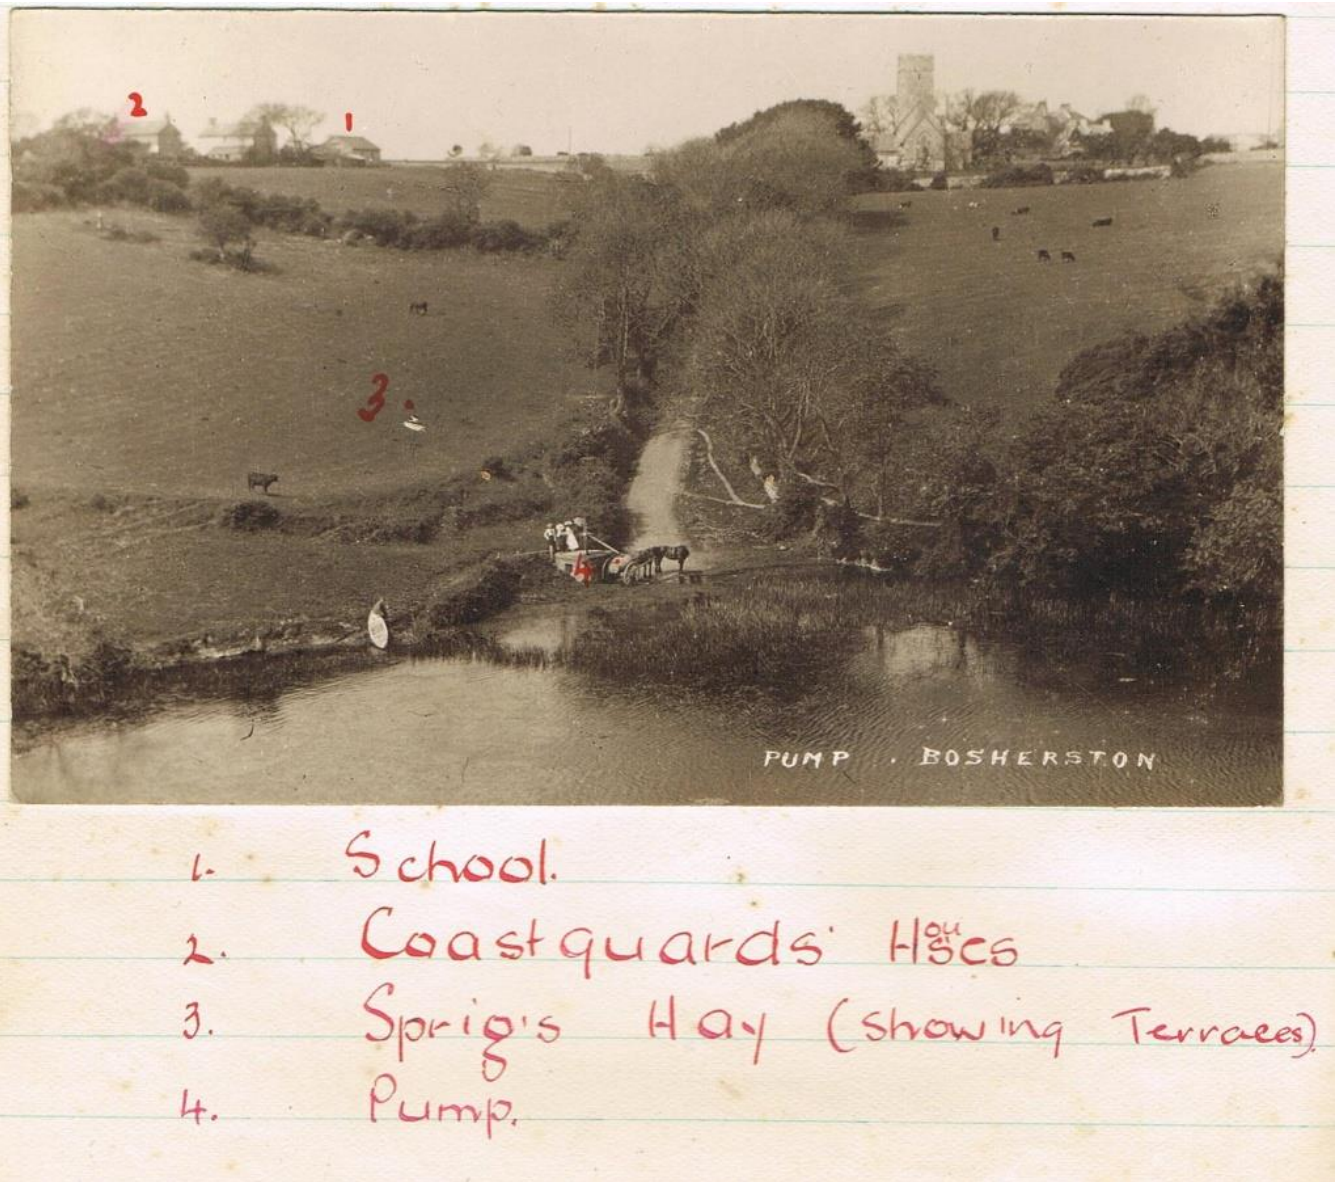 2
1
3.
4
PUMP . BOSHERSTON
1. School.
2. Coastguards' Houses
3. Sprig's Hay (showing Terraces).
4. Pump.